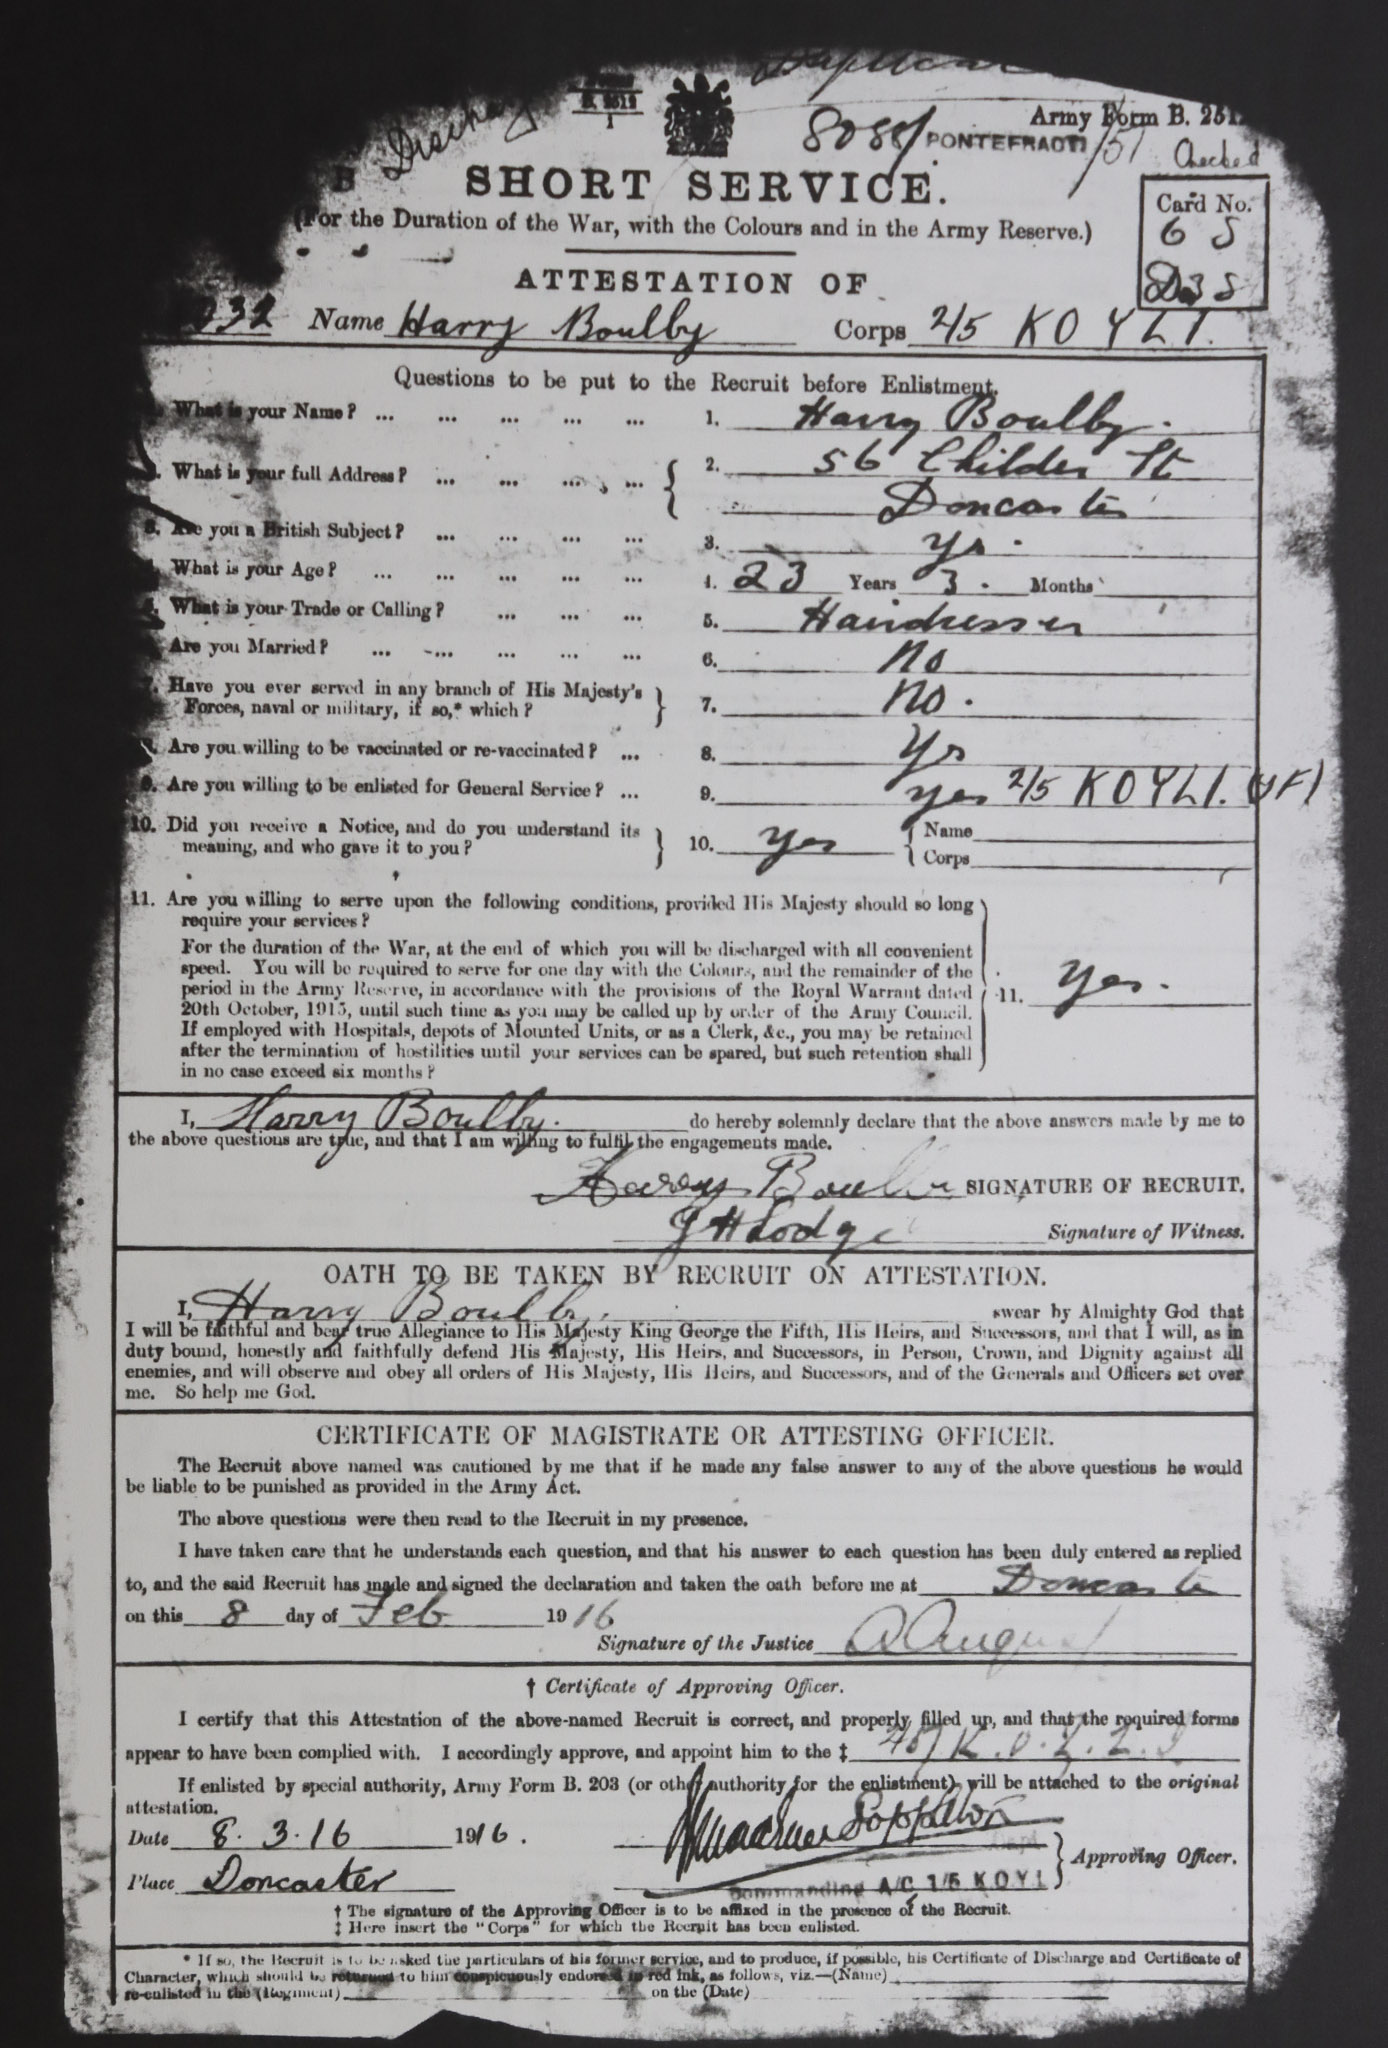 Army Form B. 251
8088/ PONTEFRACT
Checked
SHORT SERVICE.
(For the Duration of the War, with the Colours and in the Army Reserve.)
Card No.
6 S
D 3 S
ATTESTATION OF
932 Name Harry Boulby Corps 2/5 K O Y L I.
Questions to be put to the Recruit before Enlistment.
What is your Name? ... ... ... ... ... 1. Harry Boulby.
What is your full Address? ... ... ... ... 2. 56 Childers St
Doncaster
3. Are you a British Subject? ... ... ... ... 3. Yes.
What is your Age? ... ... ... ... ... 4. 23 Years 3. Months
What is your Trade or Calling? ... ... ... 5. Hairdresser
Are you Married? ... ... ... ... ... 6. No
7. Have you ever served in any branch of His Majesty's
Forces, naval or military, if so,* which? 7. No.
Are you willing to be vaccinated or re-vaccinated? ... 8. Yes
9. Are you willing to be enlisted for General Service? ... 9. yes 2/5 K O Y L I.
10. Did you receive a Notice, and do you understand its
meaning, and who gave it to you? 10. yes { Name
Corps
11. Are you willing to serve upon the following conditions, provided His Majesty should so long
require your services?
For the duration of the War, at the end of which you will be discharged with all convenient
speed. You will be required to serve for one day with the Colours, and the remainder of the
period in the Army Reserve, in accordance with the provisions of the Royal Warrant dated
20th October, 1915, until such time as you may be called up by order of the Army Council.
If employed with Hospitals, depots of Mounted Units, or as a Clerk, &c., you may be retained
after the termination of hostilities until your services can be spared, but such retention shall
in no case exceed six months?
11. Yes.
I, Harry Boulby. do hereby solemnly declare that the above answers made by me to
the above questions are true, and that I am willing to fulfil the engagements made.
Harry Boulby SIGNATURE OF RECRUIT.
J H Lodge Signature of Witness.
OATH TO BE TAKEN BY RECRUIT ON ATTESTATION.
I, Harry Boulby. swear by Almighty God that
I will be faithful and bear true Allegiance to His Majesty King George the Fifth, His Heirs, and Successors, and that I will, as in
duty bound, honestly and faithfully defend His Majesty, His Heirs, and Successors, in Person, Crown, and Dignity against all
enemies, and will observe and obey all orders of His Majesty, His Heirs, and Successors, and of the Generals and Officers set over
me. So help me God.
CERTIFICATE OF MAGISTRATE OR ATTESTING OFFICER.
The Recruit above named was cautioned by me that if he made any false answer to any of the above questions he would
be liable to be punished as provided in the Army Act.
The above questions were then read to the Recruit in my presence.
I have taken care that he understands each question, and that his answer to each question has been duly entered as replied
to, and the said Recruit has made and signed the declaration and taken the oath before me at Doncaster
on this 8 day of Feb 1916
Signature of the Justice
† Certificate of Approving Officer.
I certify that this Attestation of the above-named Recruit is correct, and properly filled up, and that the required forms
appear to have been complied with. I accordingly approve, and appoint him to the ‡ K.O.Y.L.I
If enlisted by special authority, Army Form B. 203 (or other authority for the enlistment) will be attached to the original
attestation.
Date 8.3.16 1916.
Approving Officer.
Place Doncaster
Commanding A/C 1/5 K.O.Y.L
† The signature of the Approving Officer is to be affixed in the presence of the Recruit.
‡ Here insert the "Corps" for which the Recruit has been enlisted.
* If so, the Recruit is to be asked the particulars of his former service, and to produce, if possible, his Certificate of Discharge and Certificate of
Character, which should be returned to him conspicuously endorsed in red ink, as follows, viz.—(Name)
re-enlisted in the (Regiment) on the (Date)